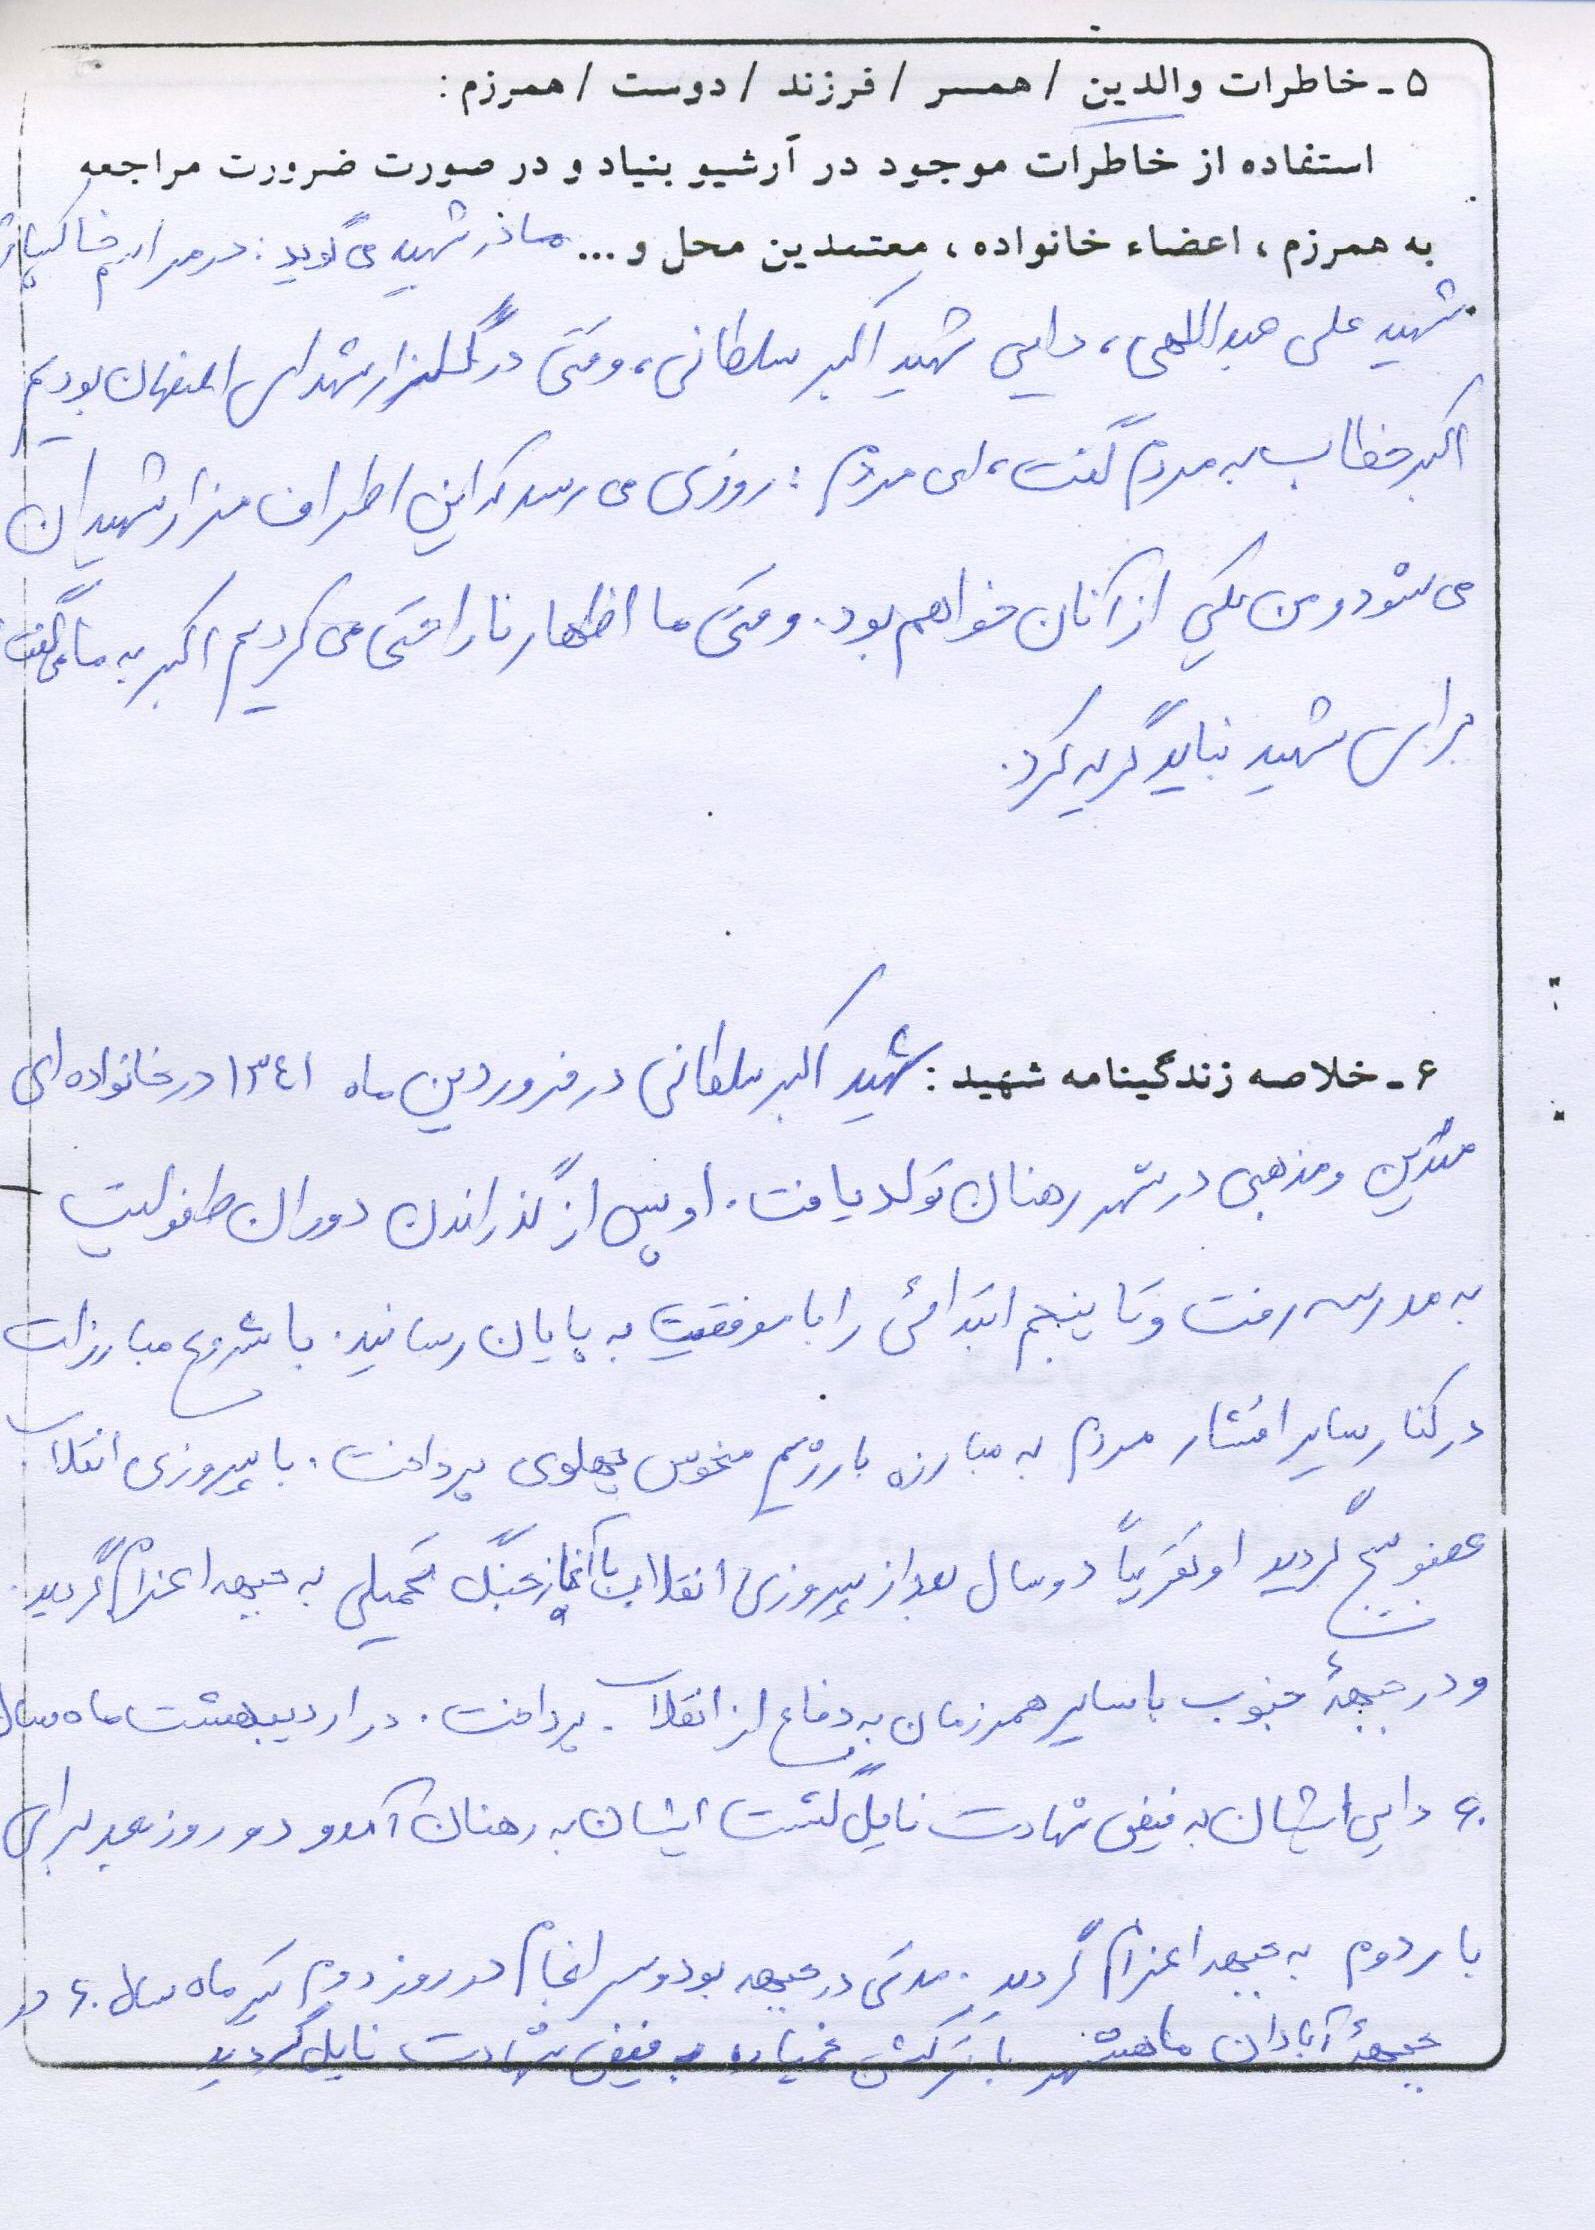 ۵ - خاطرات والدین / همسر / فرزند / دوست / همرزم :
استفاده از خاطرات موجود در آرشیو بنیاد و در صورت ضرورت مراجعه
به همرزم ، اعضاء خانواده ، معتمدین محل و ... مادر شهید می گوید : در مراسم خاکسپاری
شهید علی عبداللهی ، دایی شهید اکبر سلطانی ، وقتی در گلزار شهدای اصفهان بودیم
اکبر خطاب به مردم گفت ، ای مردم : روزی می رسد که این اطراف مزار شهیدان
می شود و من یکی از آنان خواهم بود . وقتی ما اظهار ناراحتی می کردیم اکبر به ما می گفت :
برای شهید نباید گریه کرد .
۶ - خلاصه زندگینامه شهید : شهید اکبر سلطانی در فروردین ماه ۱۳۴۱ در خانواده ای
متدین و مذهبی در شهر رهنان تولد یافت . او پس از گذراندن دوران طفولیت
به مدرسه رفت و تا پنجم ابتدائی را با موفقیت به پایان رسانید . با شروع مبارزات
در کنار سایر اقشار مردم به مبارزه با رژیم منحوس پهلوی پرداخت . با پیروزی انقلاب
عضو بسیج گردید او تقریباً دو سال بعد از پیروزی انقلاب با آغاز جنگ تحمیلی به جبهه اعزام گردید .
و در جبههٔ جنوب با سایر همرزمان به دفاع از انقلاب پرداخت . در اردیبهشت ماه سال
۶۰ دایی ایشان به فیض شهادت نایل گشت ایشان به رهنان آمد و دو روز بعد برای
بار دوم به جبهه اعزام گردید . مدتی در جبهه بود و سرانجام در روز دوم تیر ماه سال ۶۰ در
جبههٔ آبادان ماهشهر با ترکش خمپاره به فیض شهادت نایل گردید